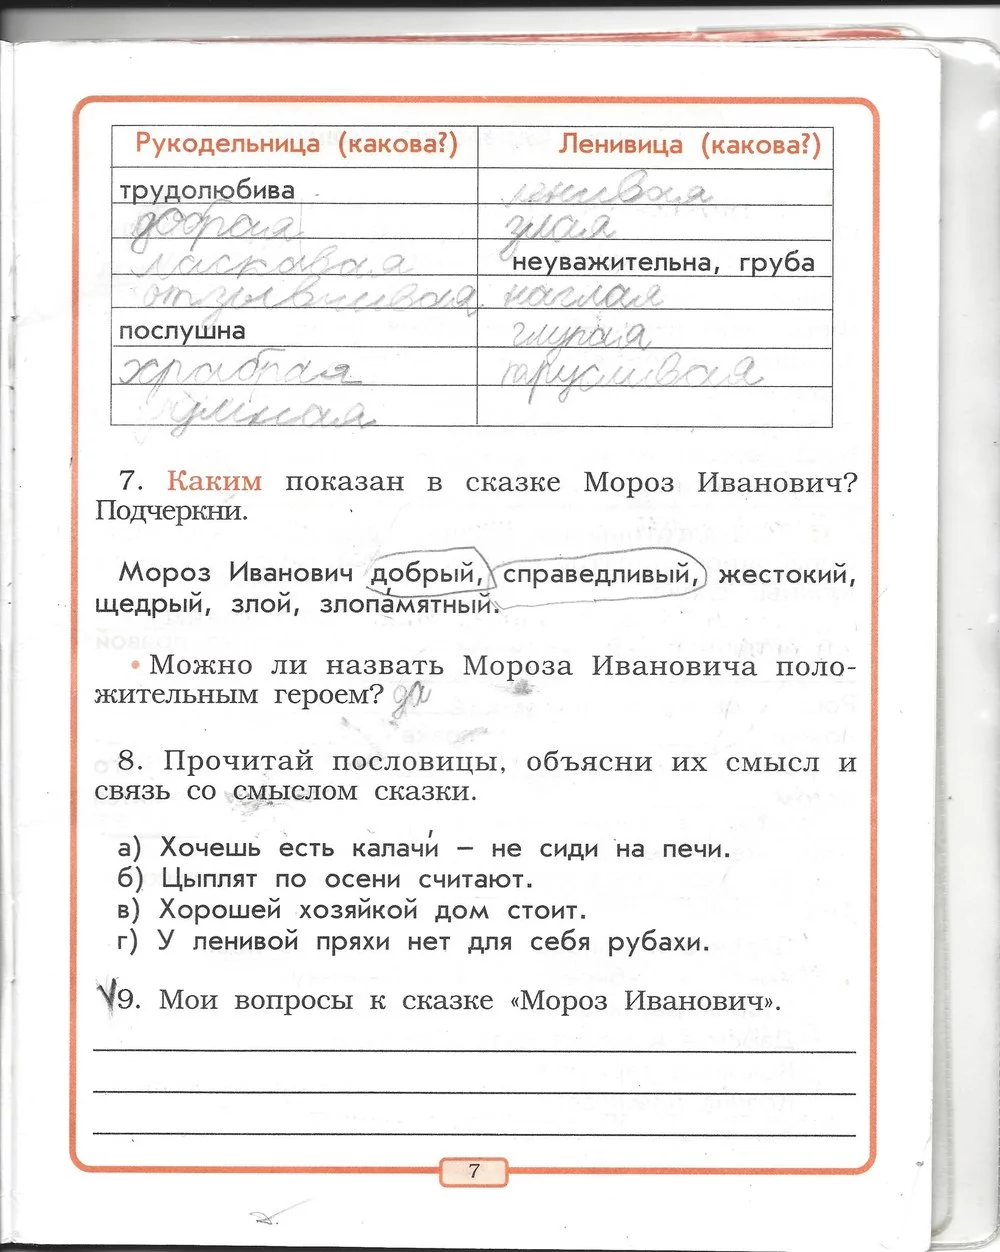 Рукодельница (какова?) Ленивица (какова?)
трудолюбива ленивая
добрая злая
ласковая неуважительна, груба
отзывчивая наглая
послушна глупая
храбрая трусливая
умная
7. Каким показан в сказке Мороз Иванович?
Подчеркни.
Мороз Иванович добрый, справедливый, жестокий,
щедрый, злой, злопамятный.
• Можно ли назвать Мороза Ивановича поло-
жительным героем? да
8. Прочитай пословицы, объясни их смысл и
связь со смыслом сказки.
а) Хочешь есть калачи́ – не сиди на печи.
б) Цыплят по осени считают.
в) Хорошей хозяйкой дом стоит.
г) У ленивой пряхи нет для себя рубахи.
√9. Мои вопросы к сказке «Мороз Иванович».
7